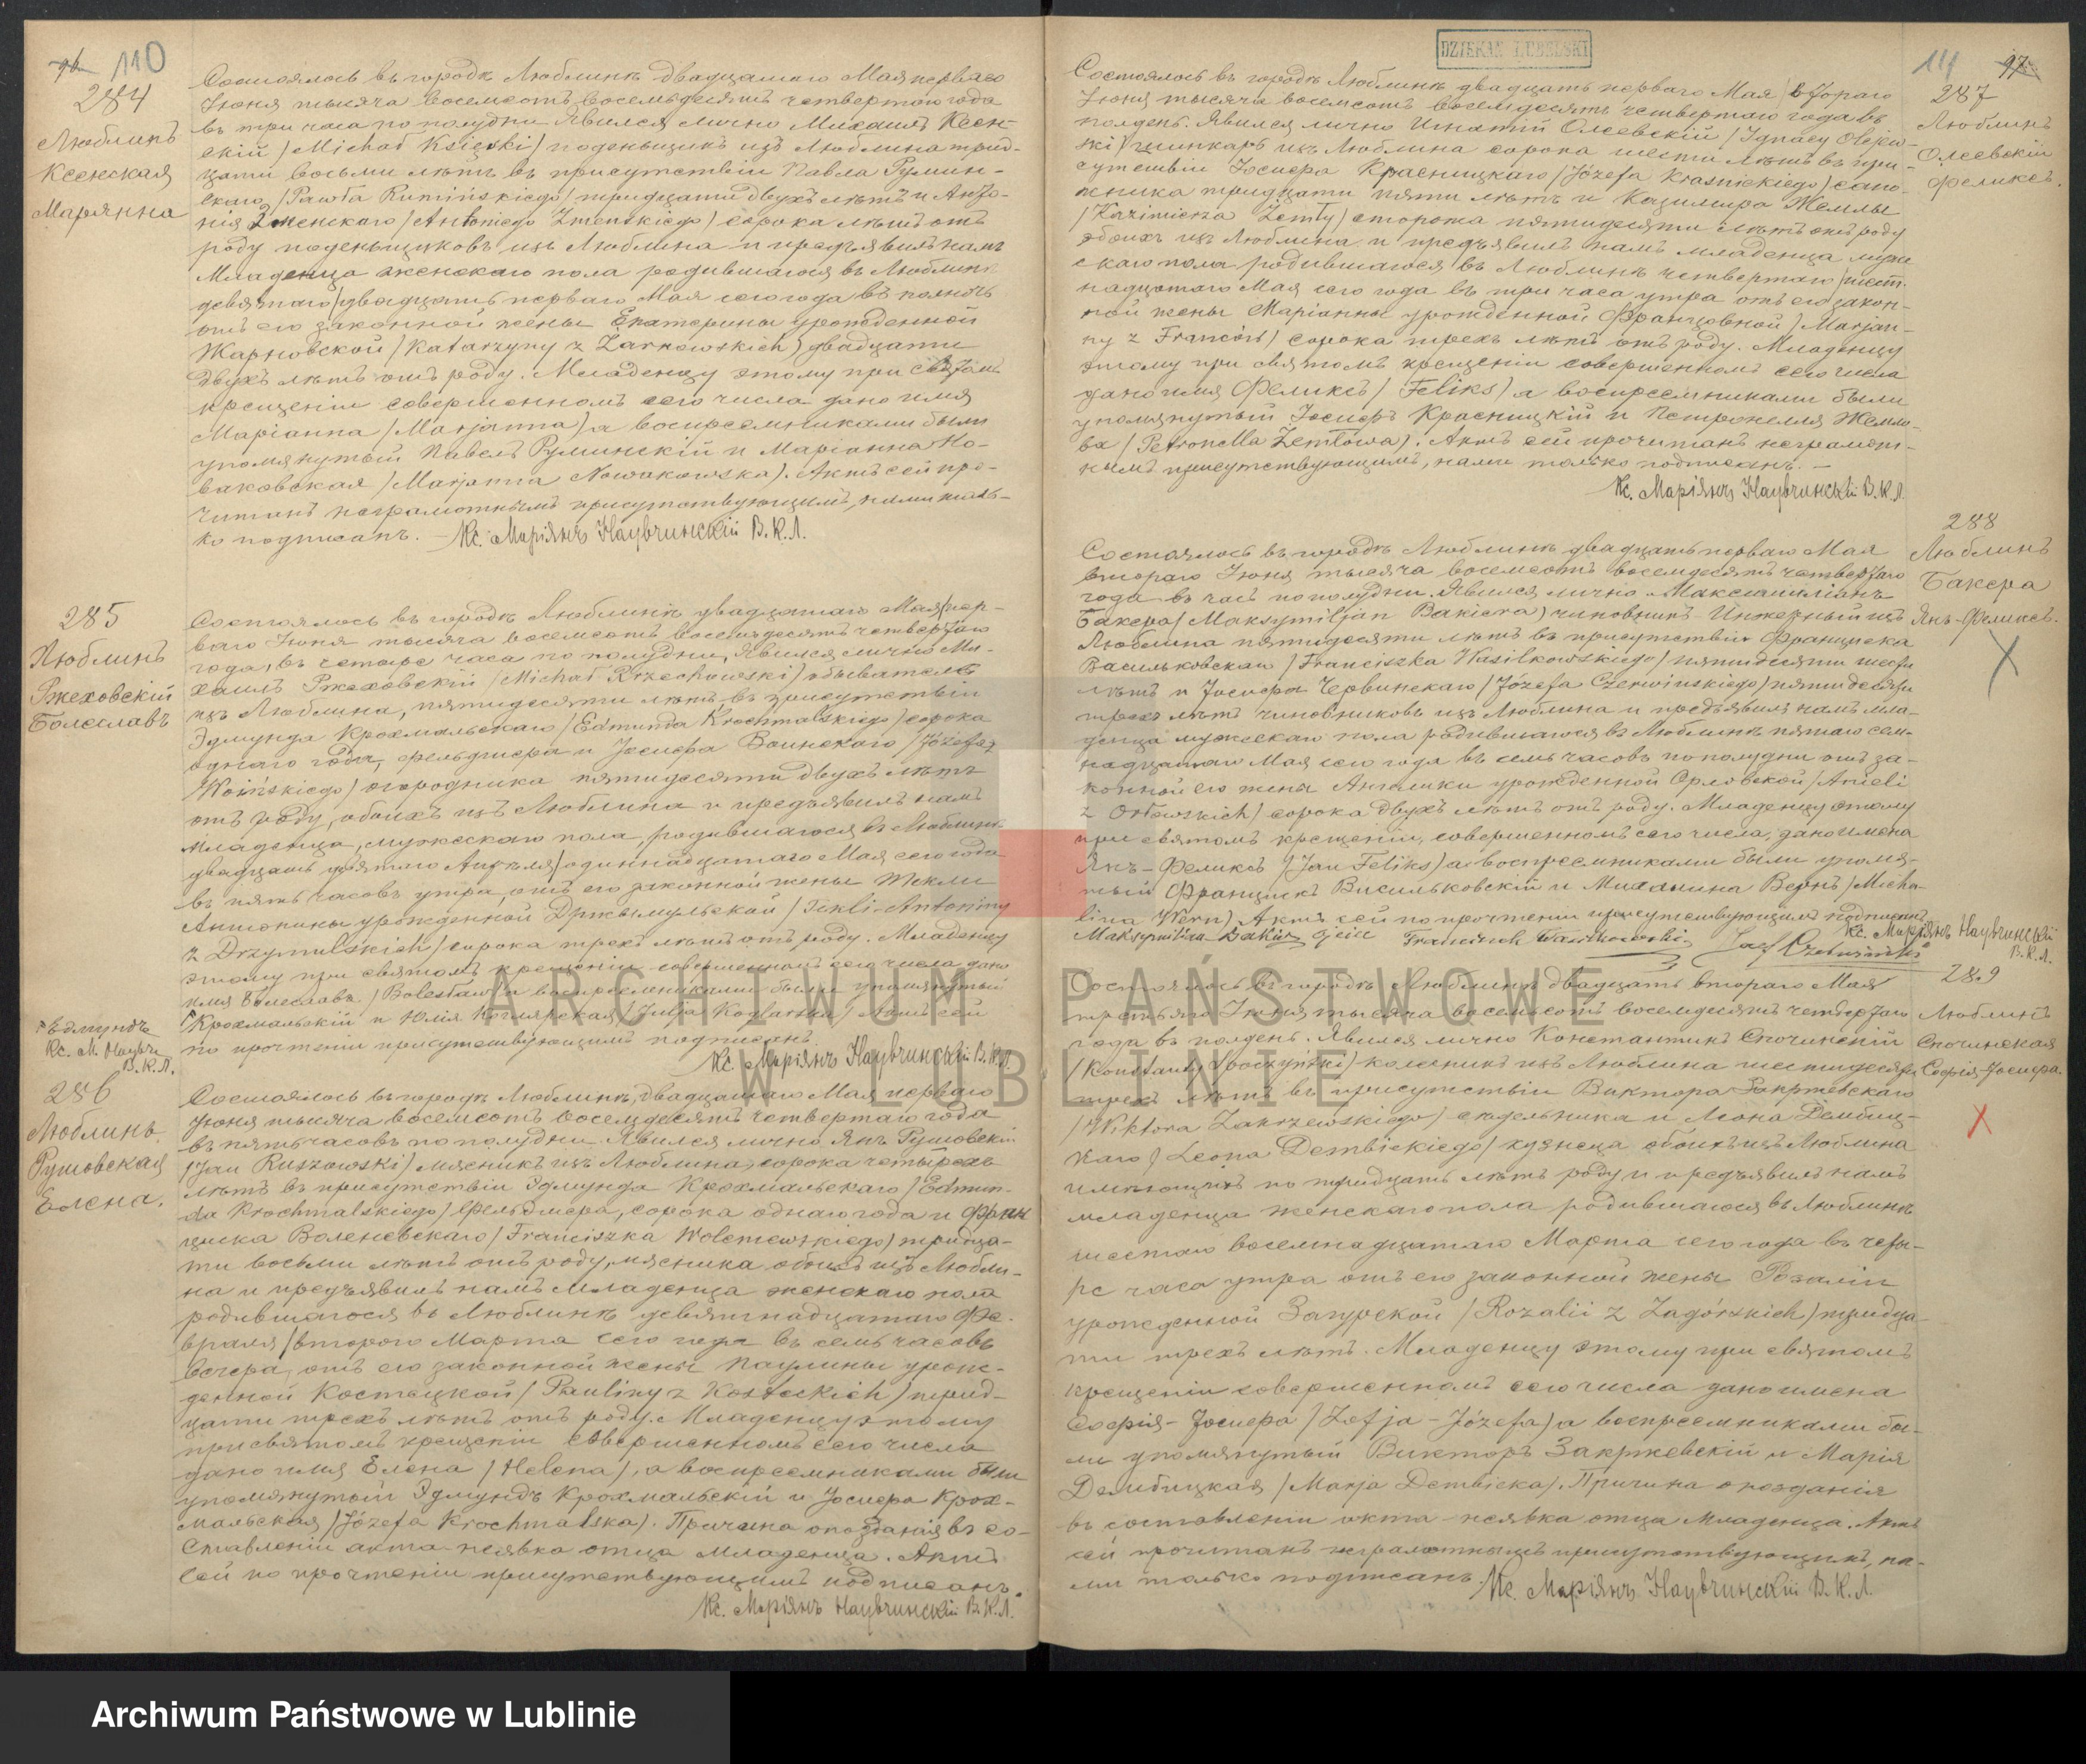 96 110
284
Люблинъ
Ксенская
Марянна
Состоялось въ городѣ Люблинѣ двадцатаго Мая перваго
Іюня тысяча восемсотъ восемьдесятъ четвертаго года
въ три часа по полудни. Явился лично Михаилъ Ксен-
скій /Michał Księski/ поденьщикъ изъ Люблина трид-
цати восьми лѣтъ въ присутствіи Павла Румин-
скаго /Pawła Rumińskiego/ тридцати двухъ лѣтъ и Анто-
нія Зменскаго /Antoniego Zmenskiego/ сорока лѣтъ отъ
роду поденьщиковъ изъ Люблина и предъявилъ намъ
Младенца женскаго пола родившагося въ Люблинѣ
девятаго/двадцать перваго Мая сего года въ полночь
отъ его законной жены Екатерины урожденной
Жарновской /Katarzyny z Żarnowskich/ двадцати
двухъ лѣтъ отъ роду. Младенцу этому при святомъ
крещеніи совершенномъ сего числа дано имя
Маріанна /Marjanna/ а воспреемниками были
упомянутый Павелъ Руминскій и Маріанна Но-
ваковская /Marjanna Nowakowska/. Актъ сей про-
читанъ неграмотнымъ присутствующимъ, нами толь-
ко подписанъ. — Кс. Маріянъ Наувчинскій В.К.Л.
285
Люблинъ
Ржеховскій
Болеславъ
Состоялось въ городѣ Люблинѣ двадцатаго Мая/пер-
ваго Іюня тысяча восемсотъ восемьдесятъ четвертаго
года, въ четыре часа по полудни, Явился лично Ми-
хаилъ Ржеховскій /Michał Rzechowski/ обыватель
изъ Люблина, пятидесяти лѣтъ въ присутствіи
Эдмунда Крохмальскаго /Edmunda Krochmalskiego/ сорока
однаго года, фельдшера и Іосифа Воинскаго /Józefa
Woińskiego/ огородника пятидесяти двухъ лѣтъ
отъ роду, обоихъ изъ Люблина и предъявилъ намъ
младенца, мужескаго пола, родившагося въ Люблинѣ
двадцать девятаго Апрѣля/одиннадцатаго Мая сего года
въ пять часовъ утра, отъ его законной жены Текли
Антонины урожденной Држымульской /Tekli-Antoniny
z Drzymulskich/ сорока трехъ лѣтъ отъ роду. Младенцу
этому при святомъ крещеніи совершенномъ сего числа дано
имя Болеславъ /Bolesław/ а воспреемниками были упомянутый
Крохмальскій и Юлія Коглярская /Julja Koglarska/ Актъ сей
по прочтеніи присутствующимъ подписанъ.
Кс. Маріянъ Наувчинскій В.К.Л.
Эдмундъ
Кс. М. Наувч
В.К.Л.
286
Люблинъ
Рушовская
Елена.
Состоялось въ городѣ Люблинѣ, двадцатаго Мая перваго
Іюня тысяча восемсотъ восемдесятъ четвертаго года
въ пять часовъ по полудни. Явился лично Янъ Рушовскій
/Jan Ruszowski/ мясникъ изъ Люблина, сорока четырехъ
лѣтъ въ присутствіи Эдмунда Крохмальскаго /Edmun-
da Krochmalskiego/ фельдшера, сорока однаго года и Фран
циска Воленевскаго /Franciszka Woleniewskiego/ тридца-
ти восьми лѣтъ отъ роду, мясника обоихъ изъ Любли-
на и предъявилъ намъ младенца женскаго пола
родившагося въ Люблинѣ девятнадцатаго Фе-
враля/втораго Марта сего года въ семь часовъ
вечера, отъ его законной жены Паулины урож-
денной Костецкой /Pauliny z Kosteckich/ трид-
цати трехъ лѣтъ отъ роду. Младенцу этому
при святомъ крещеніи совершенномъ сего числа
дано имя Елена /Helena/, а воспреемниками были
упомянутый Эдмундъ Крохмальскій и Іосифа Крох-
мальская /Józefa Krochmalska/. Причина опозданія въ со-
ставленіи акта неявка отца младенца. Актъ
сей по прочтеніи присутствующимъ подписанъ.
Кс. Маріянъ Наувчинскій В.К.Л.
DZIEKAN LUBELSKI
111 97
287
Люблинъ
Олеевскій
Феликсъ.
Состоялось въ городѣ Люблинѣ двадцать перваго Мая/втораго
Іюня тысяча восемсотъ восемдесятъ четвертаго года въ
полдень. Явился лично Игнатій Олеевскій /Ignacy Olejew-
ski/ шинкарь изъ Люблина сорока шести лѣтъ въ при-
сутствіи Іосифа Красницкаго /Józefa Krasnickiego/ сапо-
жника тридцати пяти лѣтъ и Казимира Жемлы
/Kazimierza Żemły/ сторожа пятидесяти лѣтъ отъ роду
обоихъ изъ Люблина и предъявилъ намъ младенца муже
скаго пола родившагося въ Люблинѣ четвертаго/шест-
надцатаго Мая сего года въ три часа утра отъ его закон-
ной жены Маріанны урожденной Францовной /Marjan-
ny z Francōw/ сорока трехъ лѣтъ отъ роду. Младенцу
этому при святомъ крещеніи совершенномъ сего числа
дано имя Феликсъ /Feliks/ а воспреемниками были
упомянутый Іосифъ Красницкій и Петронелля Жемло-
ва /Petronella Żemłowa/. Актъ сей прочитанъ неграмот-
нымъ присутствующимъ, нами только подписанъ. —
Кс. Маріянъ Наувчинскій В.К.Л.
288
Люблинъ
Бакера
Янъ-Феликсъ.
Состоялось въ городѣ Люблинѣ двадцать перваго Мая
втораго Іюня тысяча восемсотъ восемдесятъ четвертаго
года въ часъ по полудни. Явился лично Максимиліанъ
Бакера /Maksymiljan Bakiera/ чиновникъ Инженерный изъ
Люблина пятидесяти лѣтъ въ присутствіи Франциска
Васильковскаго /Franciszka Wasilkowskiego/ пятидесяти шести
лѣтъ и Іосифа Червинскаго /Józefa Czerwinskiego/ пятидесяти
трехъ лѣтъ чиновниковъ изъ Люблина и предъявилъ намъ мла-
денца мужескаго пола родившагося въ Люблинѣ пятаго сем-
надцатаго Мая сего года въ семь часовъ по полудни отъ за-
конной его жены Ангелики урожденной Орловской /Anieli
z Orłowskich/ сорока двухъ лѣтъ отъ роду. Младенцу этому
при святомъ крещеніи, совершенномъ сего числа, дано имена
Янъ-Феликсъ /Jan Feliks/ а воспреемниками были упомя-
тый Францискъ Васильковскій и Михалина Вернъ /Micha-
lina Wern/. Актъ сей по прочтеніи присутствующимъ подписанъ
Кс. Маріянъ Наувчинскій
В.К.Л.
Maksymilian Bakier ojciec Franciszek Wasilkowski Józef Czerwiński
289
Люблинъ
Спочинская
Софія-Іосифа.
Состоялось въ городѣ Люблинѣ двадцать втораго Мая
третьяго Іюня тысяча восемьсотъ восемдесятъ четвертаго
года въ полдень. Явился лично Константинъ Спочинскій
/Konstanty Spoczyński/ колесникъ изъ Люблина шестидесяти
трехъ лѣтъ въ присутствіи Виктора Закржевскаго
/Wiktora Zakrzewskiego/ сѣдельника и Леона Дембиц-
каго /Leona Dembickiego/ кузнеца обоихъ изъ Люблина
имѣющихъ по тридцать лѣтъ роду и предъявилъ намъ
младенца женскаго пола родившагося въ Люблинѣ
шестаго восемнадцатаго Марта сего года въ четы-
ре часа утра отъ его законной жены Розаліи
урожденной Загурской /Rozalii z Zagórskich/ тридца
ти трехъ лѣтъ. Младенцу этому при святомъ
крещеніи совершенномъ сего числа дано имена
Софія-Іосифа /Zofja-Józefa/ а воспреемниками бы-
ли упомянутый Викторъ Закржевскій и Марія
Дембицкая /Marja Dembicka/. Причина опозданія
въ составленіи акта неявка отца младенца. Актъ
сей прочитанъ неграмотнымъ присутствующимъ, на-
ми только подписанъ. Кс. Маріянъ Наувчинскій В.К.Л.
ARCHIWUM PAŃSTWOWE
W LUBLINIE
Archiwum Państwowe w Lublinie